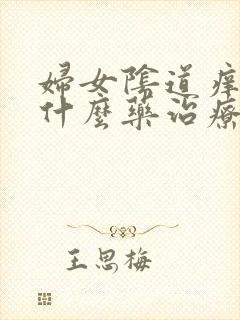 婦女陰道痒
什麼藥治療
王思梅